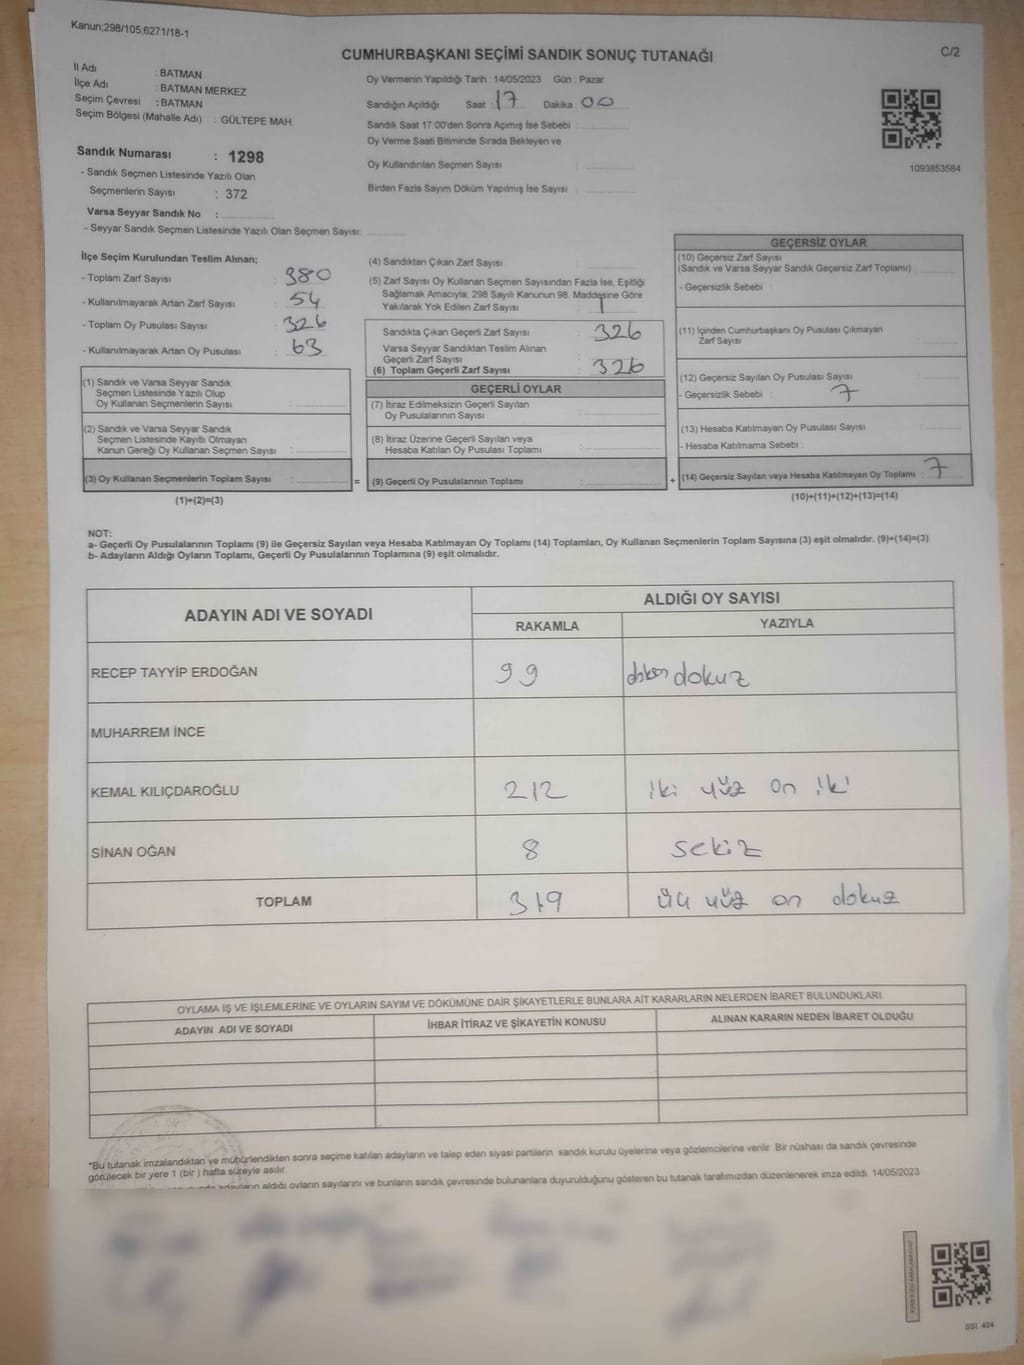 Kanun;298/105;6271/18-1
C/2
CUMHURBAŞKANI SEÇİMİ SANDIK SONUÇ TUTANAĞI
İl Adı : BATMAN
İlçe Adı : BATMAN MERKEZ
Seçim Çevresi : BATMAN
Seçim Bölgesi (Mahalle Adı) : GÜLTEPE MAH.
Oy Vermenin Yapıldığı Tarih : 14/05/2023 Gün : Pazar
Sandığın Açıldığı Saat : 17 Dakika : 00
Sandık Saat 17.00'den Sonra Açımış İse Sebebi :
Oy Verme Saati Bitiminde Sırada Bekleyen ve
Oy Kullandırılan Seçmen Sayısı :
Birden Fazla Sayım Döküm Yapılmış İse Sayısı :
1093853584
Sandık Numarası : 1298
- Sandık Seçmen Listesinde Yazılı Olan
Seçmenlerin Sayısı : 372
Varsa Seyyar Sandık No :
- Seyyar Sandık Seçmen Listesinde Yazılı Olan Seçmen Sayısı:
İlçe Seçim Kurulundan Teslim Alınan;
- Toplam Zarf Sayısı : 380
- Kullanılmayarak Artan Zarf Sayısı : 54
- Toplam Oy Pusulası Sayısı : 326
- Kullanılmayarak Artan Oy Pusulası : 63
(1) Sandık ve Varsa Seyyar Sandık
Seçmen Listesinde Yazılı Olup
Oy Kullanan Seçmenlerin Sayısı :
(2) Sandık ve Varsa Seyyar Sandık
Seçmen Listesinde Kayıtlı Olmayan
Kanun Gereği Oy Kullanan Seçmen Sayısı :
(3) Oy Kullanan Seçmenlerin Toplam Sayısı :
(1)+(2)=(3)
(4) Sandıktan Çıkan Zarf Sayısı :
(5) Zarf Sayısı Oy Kullanan Seçmen Sayısından Fazla İse, Eşitliği
Sağlamak Amacıyla; 298 Sayılı Kanunun 98. Maddesine Göre
Yakılarak Yok Edilen Zarf Sayısı :
Sandıkta Çıkan Geçerli Zarf Sayısı : 326
Varsa Seyyar Sandıktan Teslim Alınan
Geçerli Zarf Sayısı :
(6) Toplam Geçerli Zarf Sayısı : 326
GEÇERLİ OYLAR
(7) İtiraz Edilmeksizin Geçerli Sayılan
Oy Pusulalarının Sayısı :
(8) İtiraz Üzerine Geçerli Sayılan veya
Hesaba Katılan Oy Pusulası Toplamı :
= (9) Geçerli Oy Pusulalarının Toplamı :
GEÇERSİZ OYLAR
(10) Geçersiz Zarf Sayısı :
(Sandık ve Varsa Seyyar Sandık Geçersiz Zarf Toplamı)
- Geçersizlik Sebebi :
(11) İçinden Cumhurbaşkanı Oy Pusulası Çıkmayan
Zarf Sayısı :
(12) Geçersiz Sayılan Oy Pusulası Sayısı :
- Geçersizlik Sebebi : 7
(13) Hesaba Katılmayan Oy Pusulası Sayısı :
- Hesaba Katılmama Sebebi :
+ (14) Geçersiz Sayılan veya Hesaba Katılmayan Oy Toplamı : 7
(10)+(11)+(12)+(13)=(14)
NOT:
a- Geçerli Oy Pusulalarının Toplamı (9) ile Geçersiz Sayılan veya Hesaba Katılmayan Oy Toplamı (14) Toplamları, Oy Kullanan Seçmenlerin Toplam Sayısına (3) eşit olmalıdır. (9)+(14)=(3)
b- Adayların Aldığı Oyların Toplamı, Geçerli Oy Pusulalarının Toplamına (9) eşit olmalıdır.
ADAYIN ADI VE SOYADI ALDIĞI OY SAYISI
RAKAMLA YAZIYLA
RECEP TAYYİP ERDOĞAN 99 doksan dokuz
MUHARREM İNCE
KEMAL KILIÇDAROĞLU 212 iki yüz on iki
SİNAN OĞAN 8 sekiz
TOPLAM 319 üç yüz on dokuz
OYLAMA İŞ VE İŞLEMLERİNE VE OYLARIN SAYIM VE DÖKÜMÜNE DAİR ŞİKAYETLERLE BUNLARA AİT KARARLARIN NELERDEN İBARET BULUNDUKLARI
ADAYIN ADI VE SOYADI İHBAR İTİRAZ VE ŞİKAYETİN KONUSU ALINAN KARARIN NEDEN İBARET OLDUĞU
*Bu tutanak imzalandıktan ve mühürlendikten sonra seçime katılan adayların ve talep eden siyasi partilerin sandık kurulu üyelerine veya gözlemcilerine verilir. Bir nüshası da sandık çevresinde
görülecek bir yere 1 (bir) hafta süreyle asılır.
adayların aldığı oyların sayılarını ve bunların sandık çevresinde bulunanlara duyurulduğunu gösteren bu tutanak tarafımızdan düzenlenerek imza edildi. 14/05/2023
SSI. 404